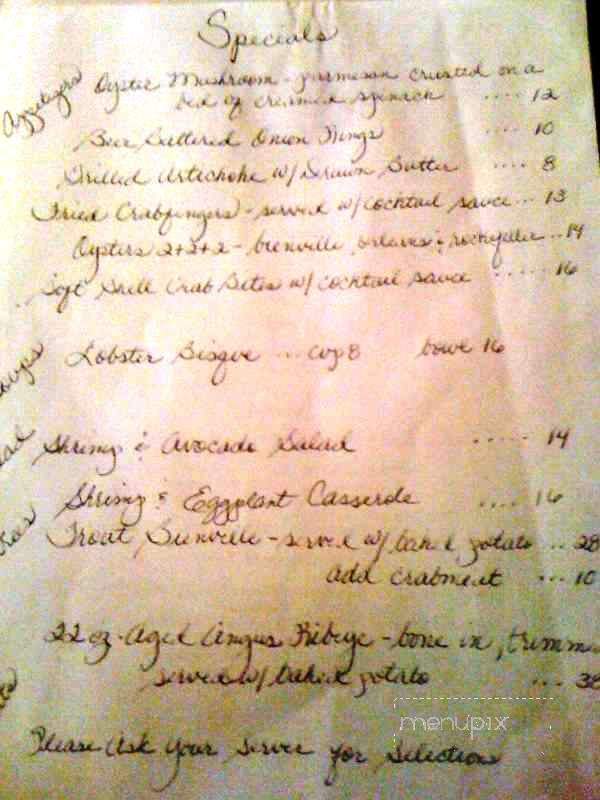 Specials
Appetizers
Oyster Mushroom - parmesan crusted on a
bed of creamed spinach .... 12
Beer Battered Onion Rings .... 10
Grilled Artichoke w/ Drawn Butter .... 8
Fried Crabfingers - served w/ cocktail sauce ... 13
Oysters 2+2+2 - bienville, orleans & rockefeller ... 14
Soft Shell Crab Bites w/ cocktail sauce ..... 16
Lobster Bisque ... cup 8 bowl 16
Shrimp & Avocado Salad ..... 14
Shrimp & Eggplant Casserole .... 16
Trout Bienville - served w/ baked potato ... 28
add crabmeat ... 10
22 oz. Aged Angus Ribeye - bone in, trimm
served w/ baked potato ... 38
Please Ask Your Server for Selections
menupix